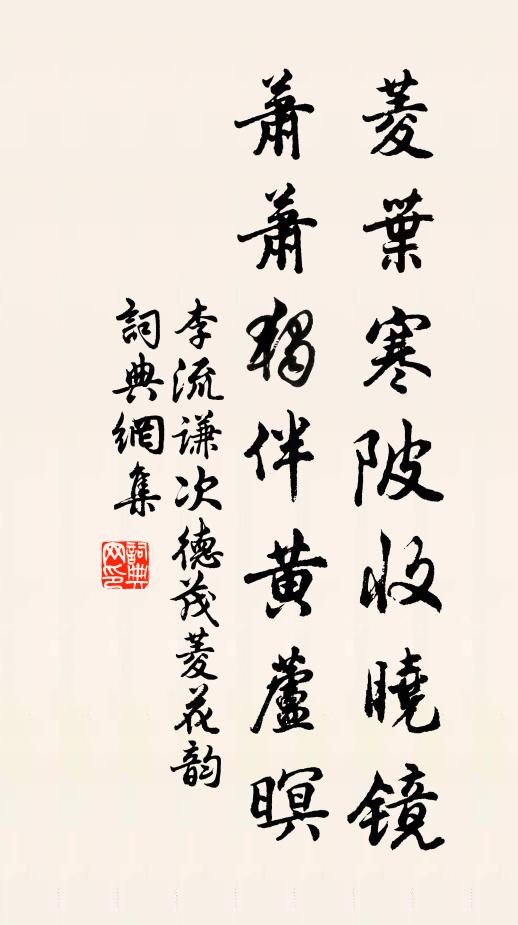 菱葉寒陂收曉鏡
蕭蕭獨伴黃蘆暝
李流謙次德茂菱花韵
詞典網集
詞典網印